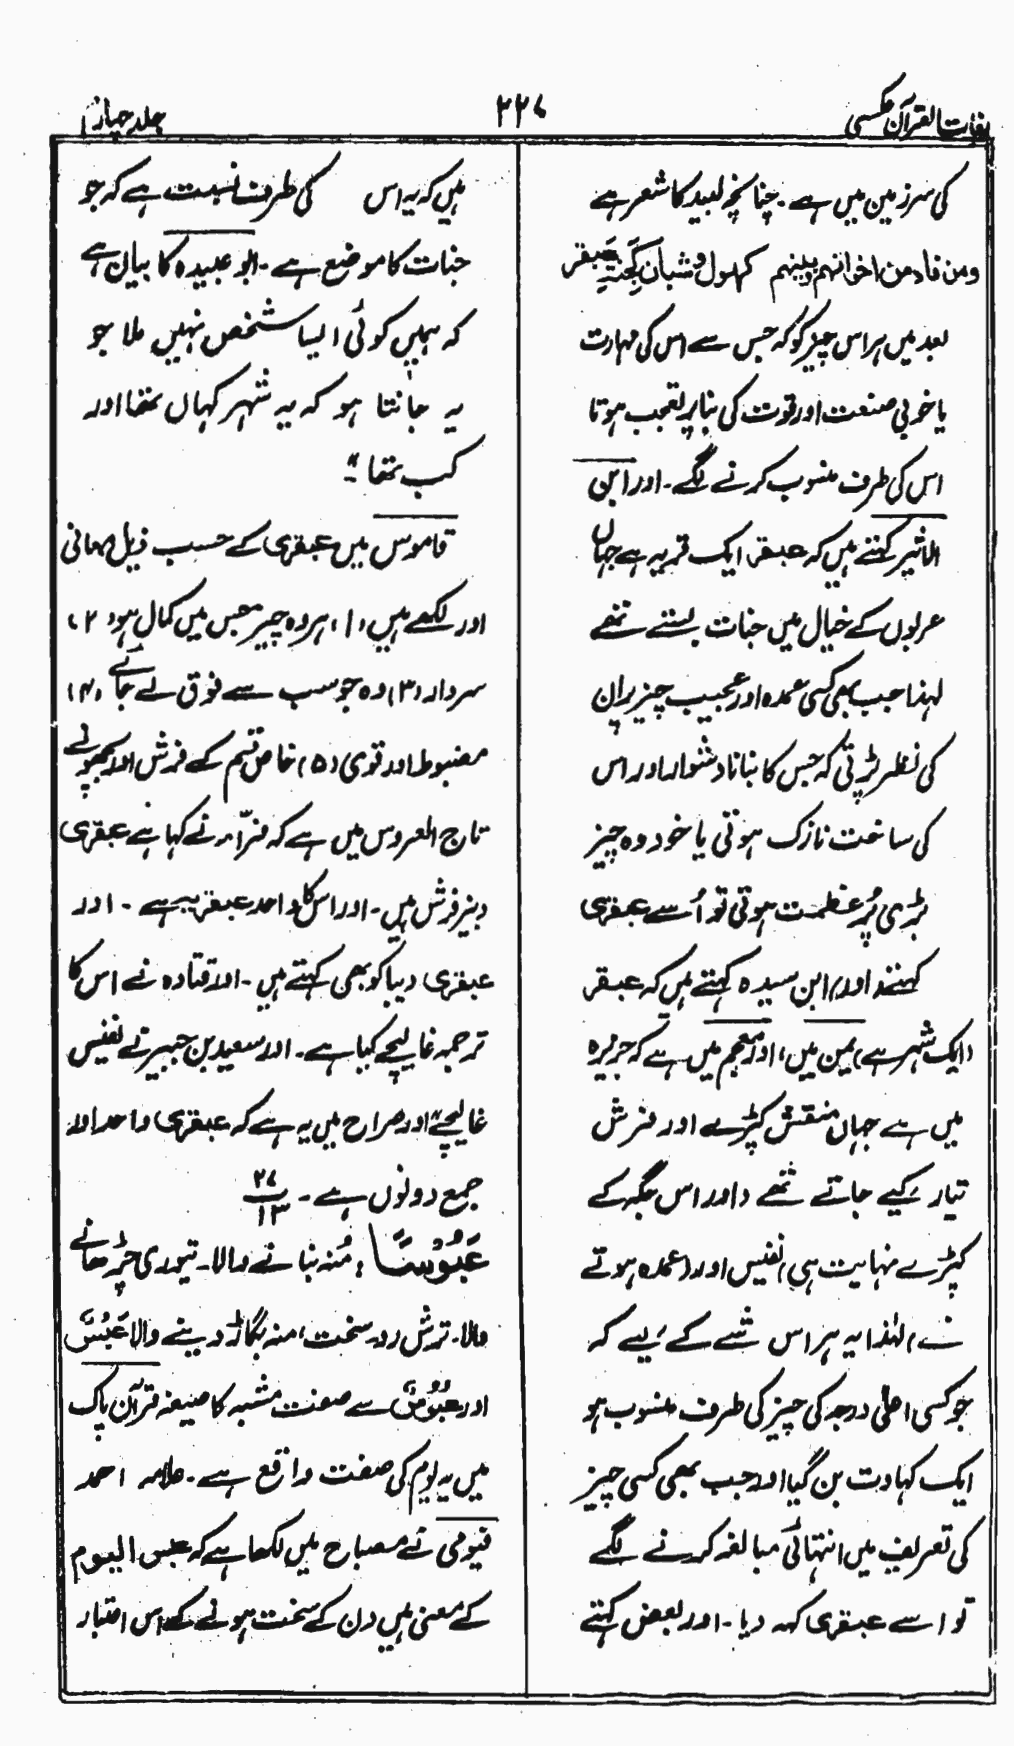 لغات القرآن عکسی
۲۲۷
جلد چہارم
کی سرزمین میں ہے ۔ چنانچہ لبید کا شعر ہے
ومن فاد من اخوانہم وبنیہم کہول وشبان کجنۃ عبقر
بعد میں ہر اس چیز کو کہ جس سے اس کی مہارت
یا خوبی صنعت اور قوت کی بنا پر تعجب ہوتا
اس کی طرف منسوب کرنے لگے ۔ اور ابن
الاثیر کہتے ہیں کہ عبقر ایک قریہ ہے جہاں
عربوں کے خیال میں جنات بستے تھے
لہذا جب بھی کسی عمدہ اور عجیب چیز پر ان
کی نظر پڑتی کہ جس کا بنانا دشوار اور اس
کی ساخت نازک ہوتی یا خود وہ چیز
بڑی پُر عظمت ہوتی تو اُسے عبقری
کہتے، اور ابن سیدہ کہتے ہیں کہ عبقر
(ایک شہر ہے) یمن میں، اور معجم میں ہے کہ جزیرہ
میں ہے جہاں منقش کپڑے اور فرش
تیار کیے جاتے تھے (اور اس جگہ کے
کپڑے نہایت ہی نفیس اور عمدہ ہوتے
لہٰذا یہ ہر اس شے کے لیے کہ
جو کسی اعلٰی درجہ کی چیز کی طرف منسوب ہو
ایک کہاوت بن گیا اور جب بھی کسی چیز
کی تعریف میں انتہائی مبالغہ کرنے لگے
تو اسے عبقری کہہ دیا ۔ اور بعض کہتے
ہیں کہ یہ اس کی طرف نسبت ہے کہ جو
جنات کا موضع ہے ۔ ابو عبیدہ کا بیان ہے
کہ ہمیں کوئی ایسا شخص نہیں ملا جو
یہ جانتا ہو کہ یہ شہر کہاں تھا اور
کب تھا"۔
قاموس میں عبقری کے حسب ذیل معانی
اور لکھے ہیں، (۱) ہر وہ چیز جس میں کمال ہو، (۲)
سردار (۳) وہ جو سب سے فوق لے جائے (۴)
مضبوط اور قوی (۵) خاص قسم کے فرش اور بچھونے
تاج العروس میں ہے کہ فرّاء نے کہا ہے عبقری
دبیز فرش ہیں ۔ اور اس کا واحد عبقریہ ہے ۔ اور
عبقری دیبا کو بھی کہتے ہیں ۔ اور قتادہ نے اس کا
ترجمہ غالیچے کیا ہے ۔ اور سعید بن جبیر نے نفیس
غالیچے" اور صراح میں یہ ہے کہ عبقری واحد اور
جمع دونوں ہے ۔ ۲۷ پ ۱۳
عَبُوْسًا : مُنہ بنانے والا ۔ تیوری چڑھانے
والا ۔ ترش رو، سخت، منہ بگاڑ دینے والا عَبْسٌ
اور عُبُوْسٌ سے صفت مشبہ کا صیغہ قرآن پاک
میں یہ یوم کی صفت واقع ہے ۔ علامہ احمد
فیومی نے مصباح میں لکھا ہے کہ عبس الیوم
کے معنی ہیں دن کے سخت ہونے کے اس اعتبار